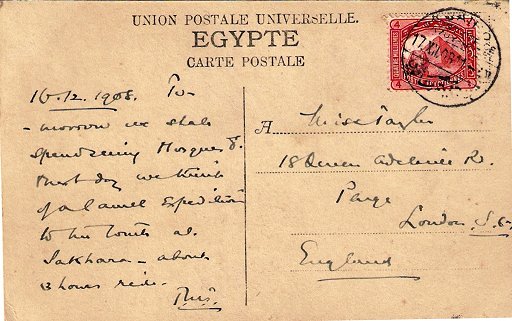 UNION POSTALE UNIVERSELLE.
EGYPTE
CARTE POSTALE
16.12.1908. To-
-morrow we shall
spend seeing Mosques &
next day we think
of a Camel Expedition
to the Tombs at
Sakhara - about
3 hours ride.
A
Miss Taylor
18 Queen Adelaide R.
Penge
London S.E.
England
4
4
17 XII 08